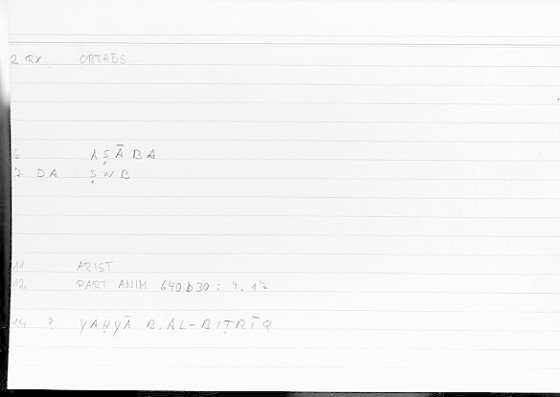 2 RX ORTHŌS
6 AṢĀBA
7 DA ṢWB
11 ARIST
12 PART ANIM 640b30 : 9.
14 ? YAḤYĀ B. AL-BIṬRĪQ